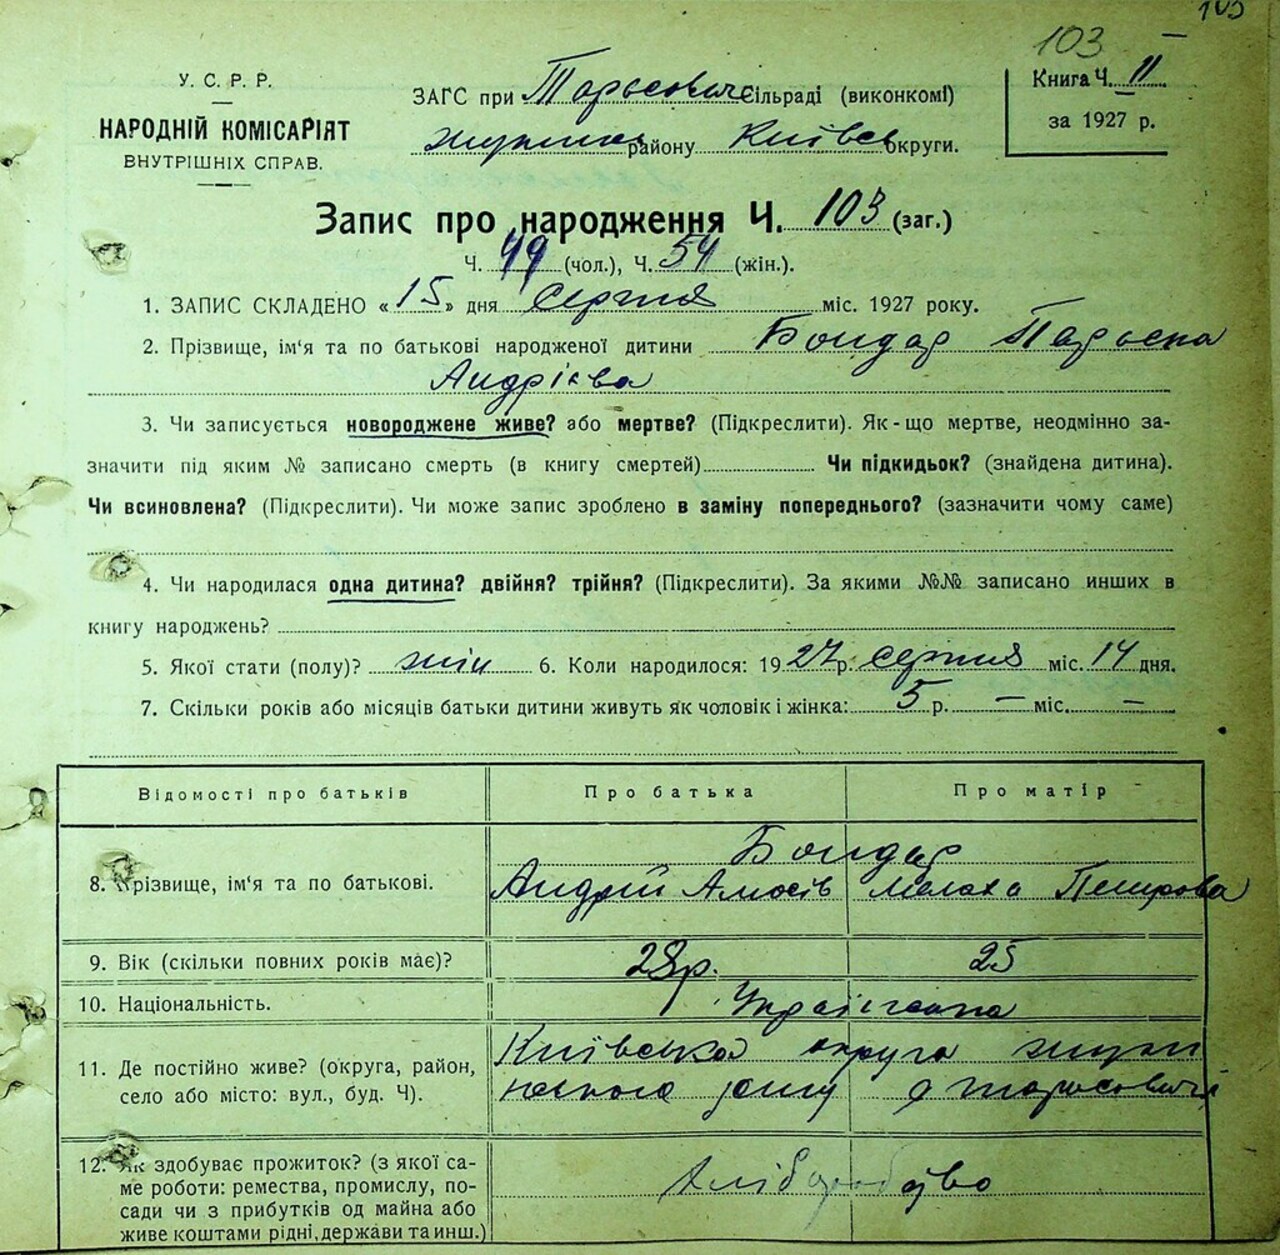 103
103
У. С. Р. Р.
НАРОДНІЙ КОМІСАРІЯТ
ВНУТРІШНІХ СПРАВ.
ЗАГС при Тарасович Сільраді (виконкомі)
району Київськ округи.
Книга Ч. 11
за 1927 р.
Запис про народження Ч. 103 (заг.)
Ч. 49 (чол.), Ч. 54 (жін.).
1. ЗАПИС СКЛАДЕНО «15» дня серпня міс. 1927 року.
2. Прізвище, ім'я та по батькові народженої дитини Бондар Параска
Андрієва
3. Чи записується новороджене живе? або мертве? (Підкреслити). Як-що мертве, неодмінно за-
значити під яким № записано смерть (в книгу смертей) Чи підкидьок? (знайдена дитина).
Чи всиновлена? (Підкреслити). Чи може запис зроблено в заміну попереднього? (зазначити чому саме)
4. Чи народилася одна дитина? двійня? трійня? (Підкреслити). За якими №№ записано инших в
книгу народжень?
5. Якої стати (полу)? жін 6. Коли народилося: 1927 р. серпня міс. 14 дня.
7. Скільки років або місяців батьки дитини живуть як чоловік і жінка: 5 р. — міс. —
Відомості про батьків Про батька Про матір
Бондар
8. Прізвище, ім'я та по батькові. Андрій Амосів Мелаха Петрова
9. Вік (скільки повних років має)? 28р. 25
10. Національність. Українська
Київська округа
11. Де постійно живе? (округа, район,
село або місто: вул., буд. Ч). с Тарасовичі
12. Як здобуває прожиток? (з якої са-
ме роботи: ремества, промислу, по- Хліборобство
сади чи з прибутків од майна або
живе коштами рідні, держави та инш.)